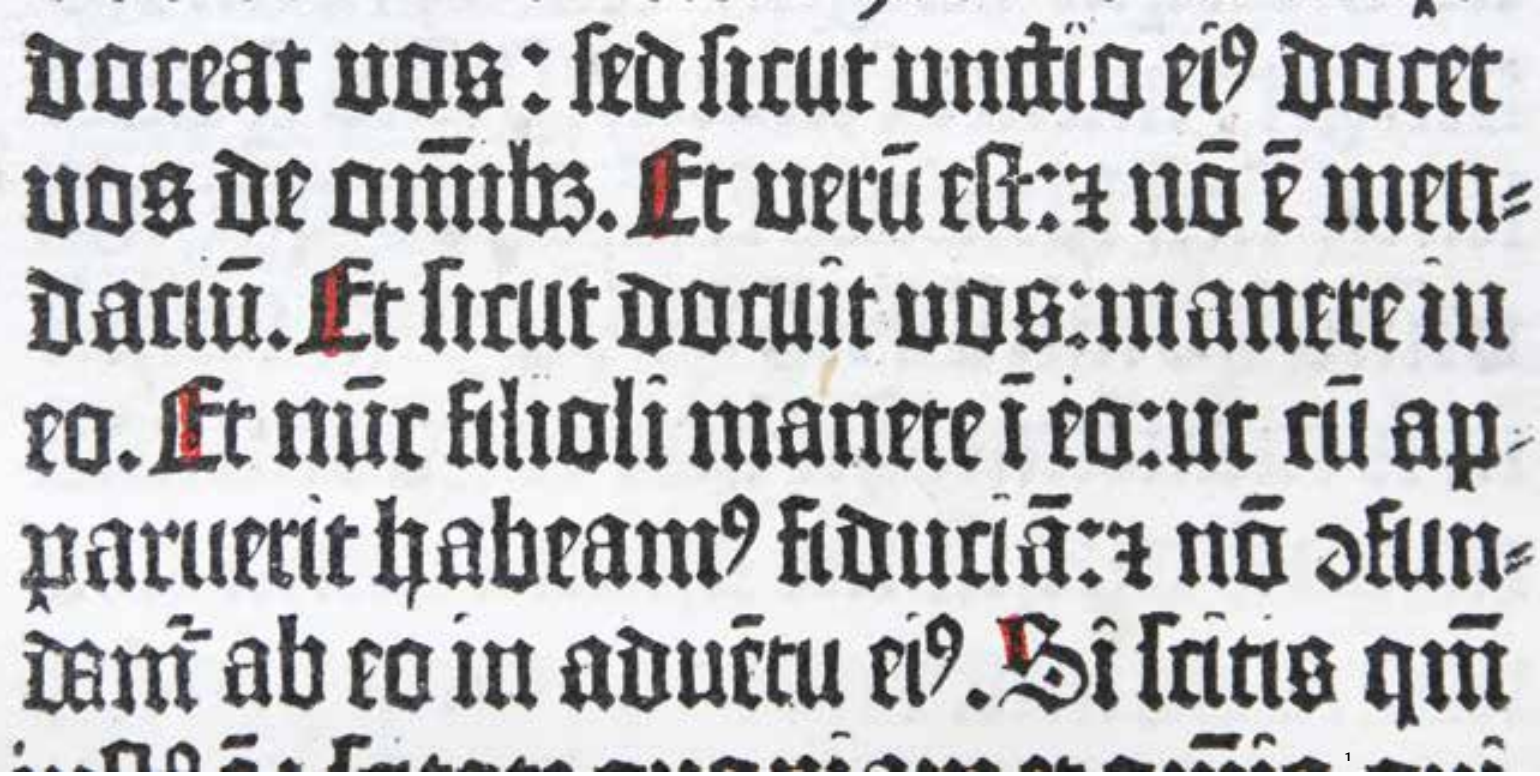 doceat vos : sed sicut vnctio eiꝰ docet
vos de om̄ibꝫ. Et verū est: ⁊ nō ē men⸗
daciū. Et sicut docuit vos: manete in
eo. Et nūc filioli manete ī eo: ut cū ap⸗
paruerit habeamꝰ fiduciā: ⁊ nō ꝯfun⸗
dam̄ ab eo in aduētu eiꝰ. Si scitis qm̄